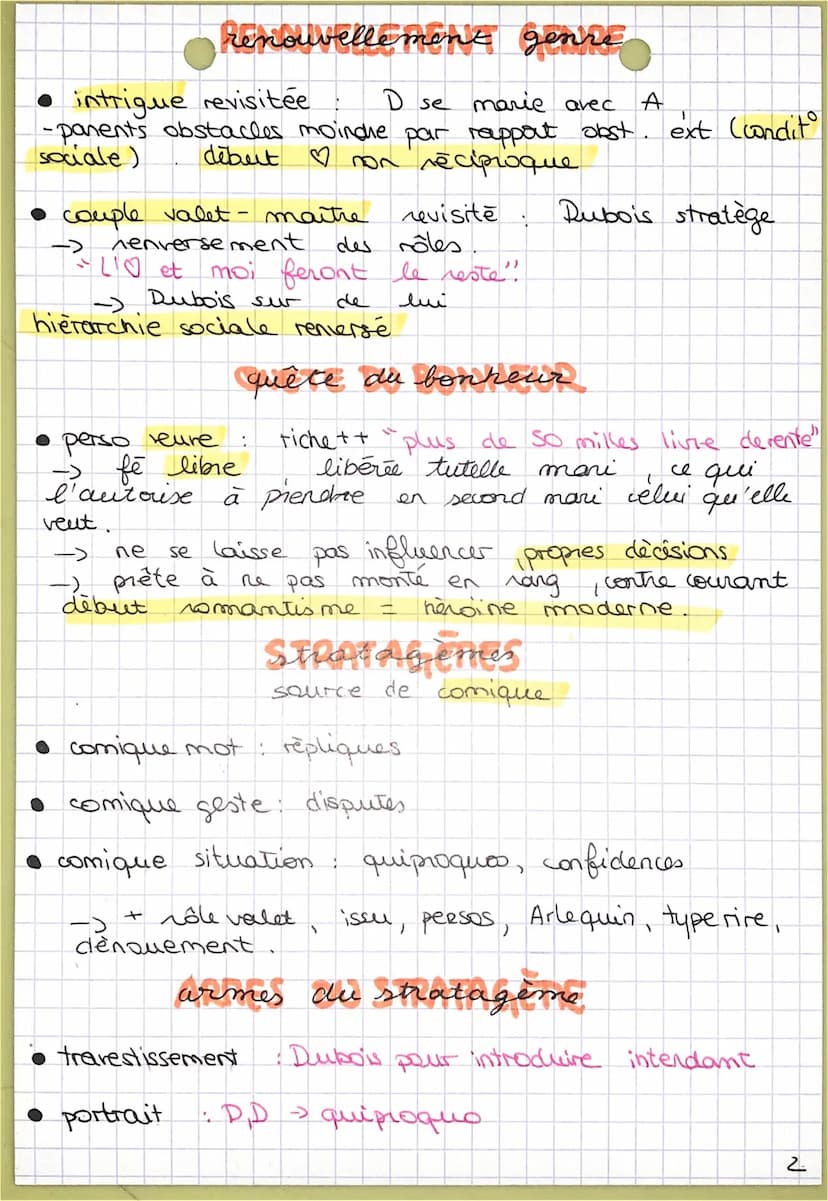 renouvellement genre
• intrigue revisitée : D se marie avec A
- parents obstacles moindre par rapport obst. ext (condit°
sociale). début ♡ non réciproque
• couple valet - maître revisité : Dubois stratège
-> renversement des rôles.
"L'♡ et moi feront le reste"!
-> Dubois sur de lui
hiérarchie sociale renversé
quête du bonheur
• perso veuve : riche++ "plus de 50 milles livre de rente"
-> fē libre, libérée tutelle mari, ce qui
l'autorise à prendre en second mari celui qu'elle
veut.
-> ne se laisse pas influencer, propres décisions
-> prête à ne pas monté en rang, contre courant
début romantisme = héroïne moderne.
stratagèmes
source de comique
• comique mot : répliques
• comique geste : disputes
• comique situation : quiproquos, confidences
-> + rôle valet, issu, persos, Arlequin, type rire,
dénouement.
ARMES du stratagème
• travestissement : Dubois pour introduire intendant
• portrait : D,D -> quiproquo
2